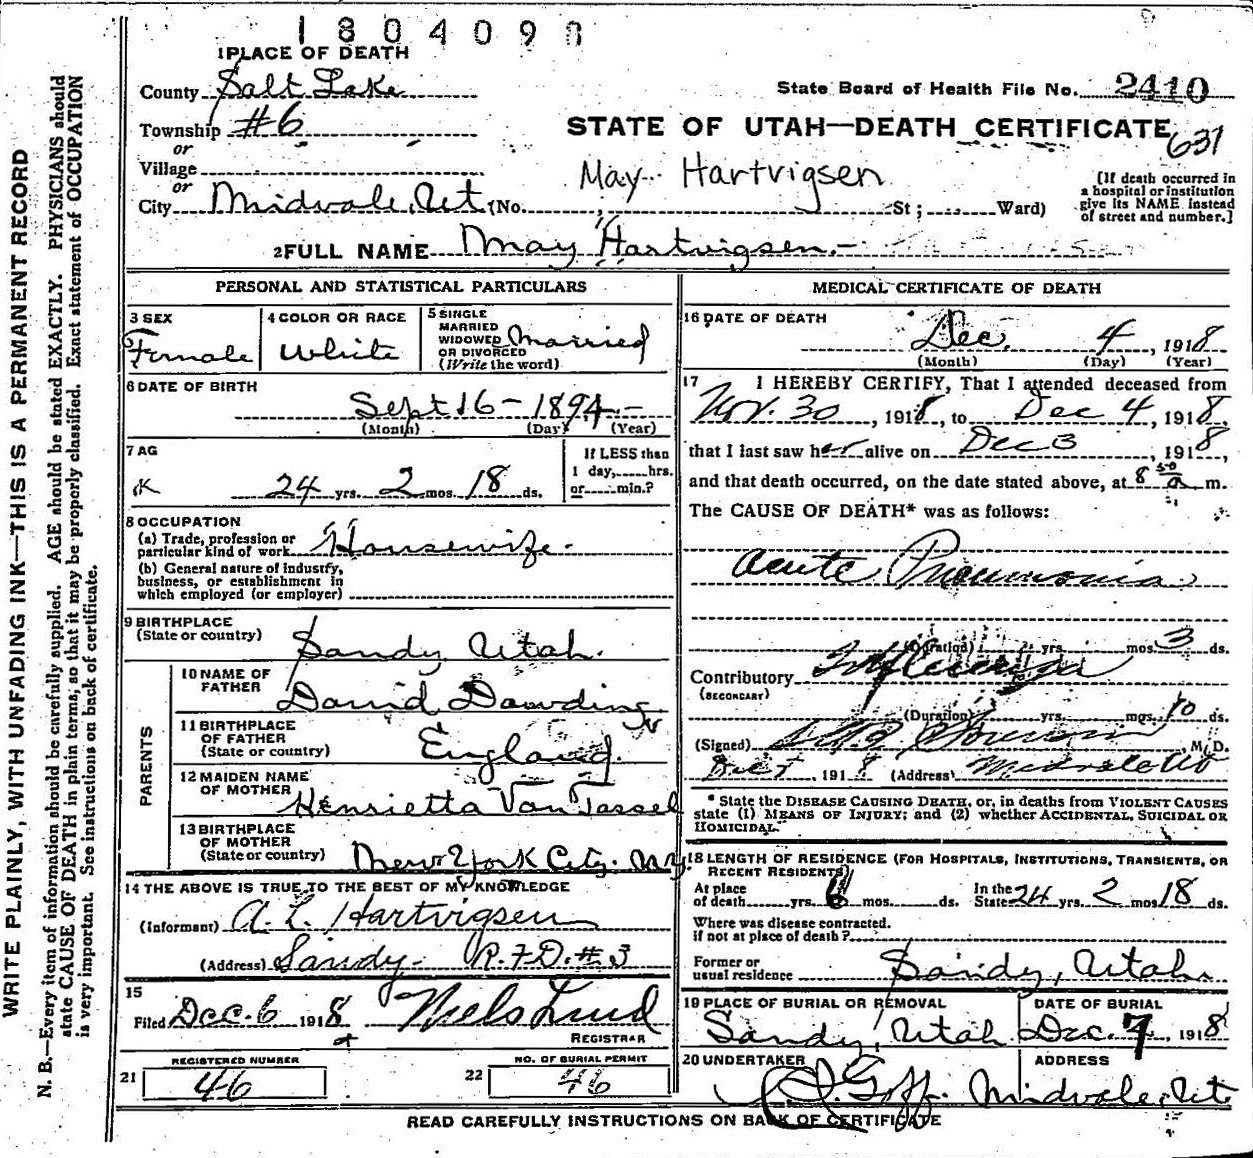 1804098
1 PLACE OF DEATH
County Salt Lake
State Board of Health File No. 2410
Township #6
STATE OF UTAH—DEATH CERTIFICATE
631
or
Village
May Hartvigsen
or
City Midvale, Ut. (No. St; Ward)
[If death occurred in
a hospital or institution
give its NAME instead
of street and number.]
2 FULL NAME May Hartvigsen.
PERSONAL AND STATISTICAL PARTICULARS
3 SEX
Female
4 COLOR OR RACE
White
5 SINGLE
MARRIED
WIDOWED
OR DIVORCED
(Write the word)
Married
6 DATE OF BIRTH
Sept 16 - 1894 -
(Month) (Day) (Year)
7 AG
24 yrs. 2 mos. 18 ds.
If LESS than
1 day, hrs.
or min.?
8 OCCUPATION
(a) Trade, profession or
particular kind of work Housewife.
(b) General nature of industry,
business, or establishment in
which employed (or employer)
9 BIRTHPLACE
(State or country)
Sandy Utah.
PARENTS
10 NAME OF
FATHER
David Dowding
11 BIRTHPLACE
OF FATHER
(State or country)
England.
12 MAIDEN NAME
OF MOTHER
Henrietta Van Tassel
13 BIRTHPLACE
OF MOTHER
(State or country)
New York City. N.Y.
14 THE ABOVE IS TRUE TO THE BEST OF MY KNOWLEDGE
(Informant) A. L. Hartvigsen
(Address) Sandy- R.F.D. #3
15
Filed Dec. 6 1918 Niels Lind
REGISTRAR
REGISTERED NUMBER
21 46
NO. OF BURIAL PERMIT
22 46
MEDICAL CERTIFICATE OF DEATH
16 DATE OF DEATH
Dec. 4, 1918
(Month) (Day) (Year)
17 I HEREBY CERTIFY, That I attended deceased from
Nov. 30, 1918, to Dec 4, 1918,
that I last saw her alive on Dec 3, 1918,
and that death occurred, on the date stated above, at 8 50 a m.
The CAUSE OF DEATH* was as follows:
Acute Pneumonia
(Duration) yrs. mos. 3 ds.
Contributory Influenza
(SECONDARY)
(Duration) yrs. mos. 10 ds.
(Signed) M.D.
Dec 1918 (Address) Midvale Ut
* State the DISEASE CAUSING DEATH, or, in deaths from VIOLENT CAUSES
state (1) MEANS OF INJURY; and (2) whether ACCIDENTAL, SUICIDAL OR
HOMICIDAL.
18 LENGTH OF RESIDENCE (FOR HOSPITALS, INSTITUTIONS, TRANSIENTS, OR
RECENT RESIDENTS)
At place
of death yrs. 6 mos. ds.
In the
State 24 yrs. 2 mos. 18 ds.
Where was disease contracted.
if not at place of death?
Former or
usual residence Sandy, Utah.
19 PLACE OF BURIAL OR REMOVAL
Sandy, Utah
DATE OF BURIAL
Dec. 7, 1918
20 UNDERTAKER
Goff.
ADDRESS
Midvale, Ut.
READ CAREFULLY INSTRUCTIONS ON BACK OF CERTIFICATE
WRITE PLAINLY, WITH UNFADING INK—THIS IS A PERMANENT RECORD
N. B.—Every item of information should be carefully supplied. AGE should be stated EXACTLY. PHYSICIANS should
state CAUSE OF DEATH in plain terms, so that it may be properly classified. Exact statement of OCCUPATION
is very important. See instructions on back of certificate.